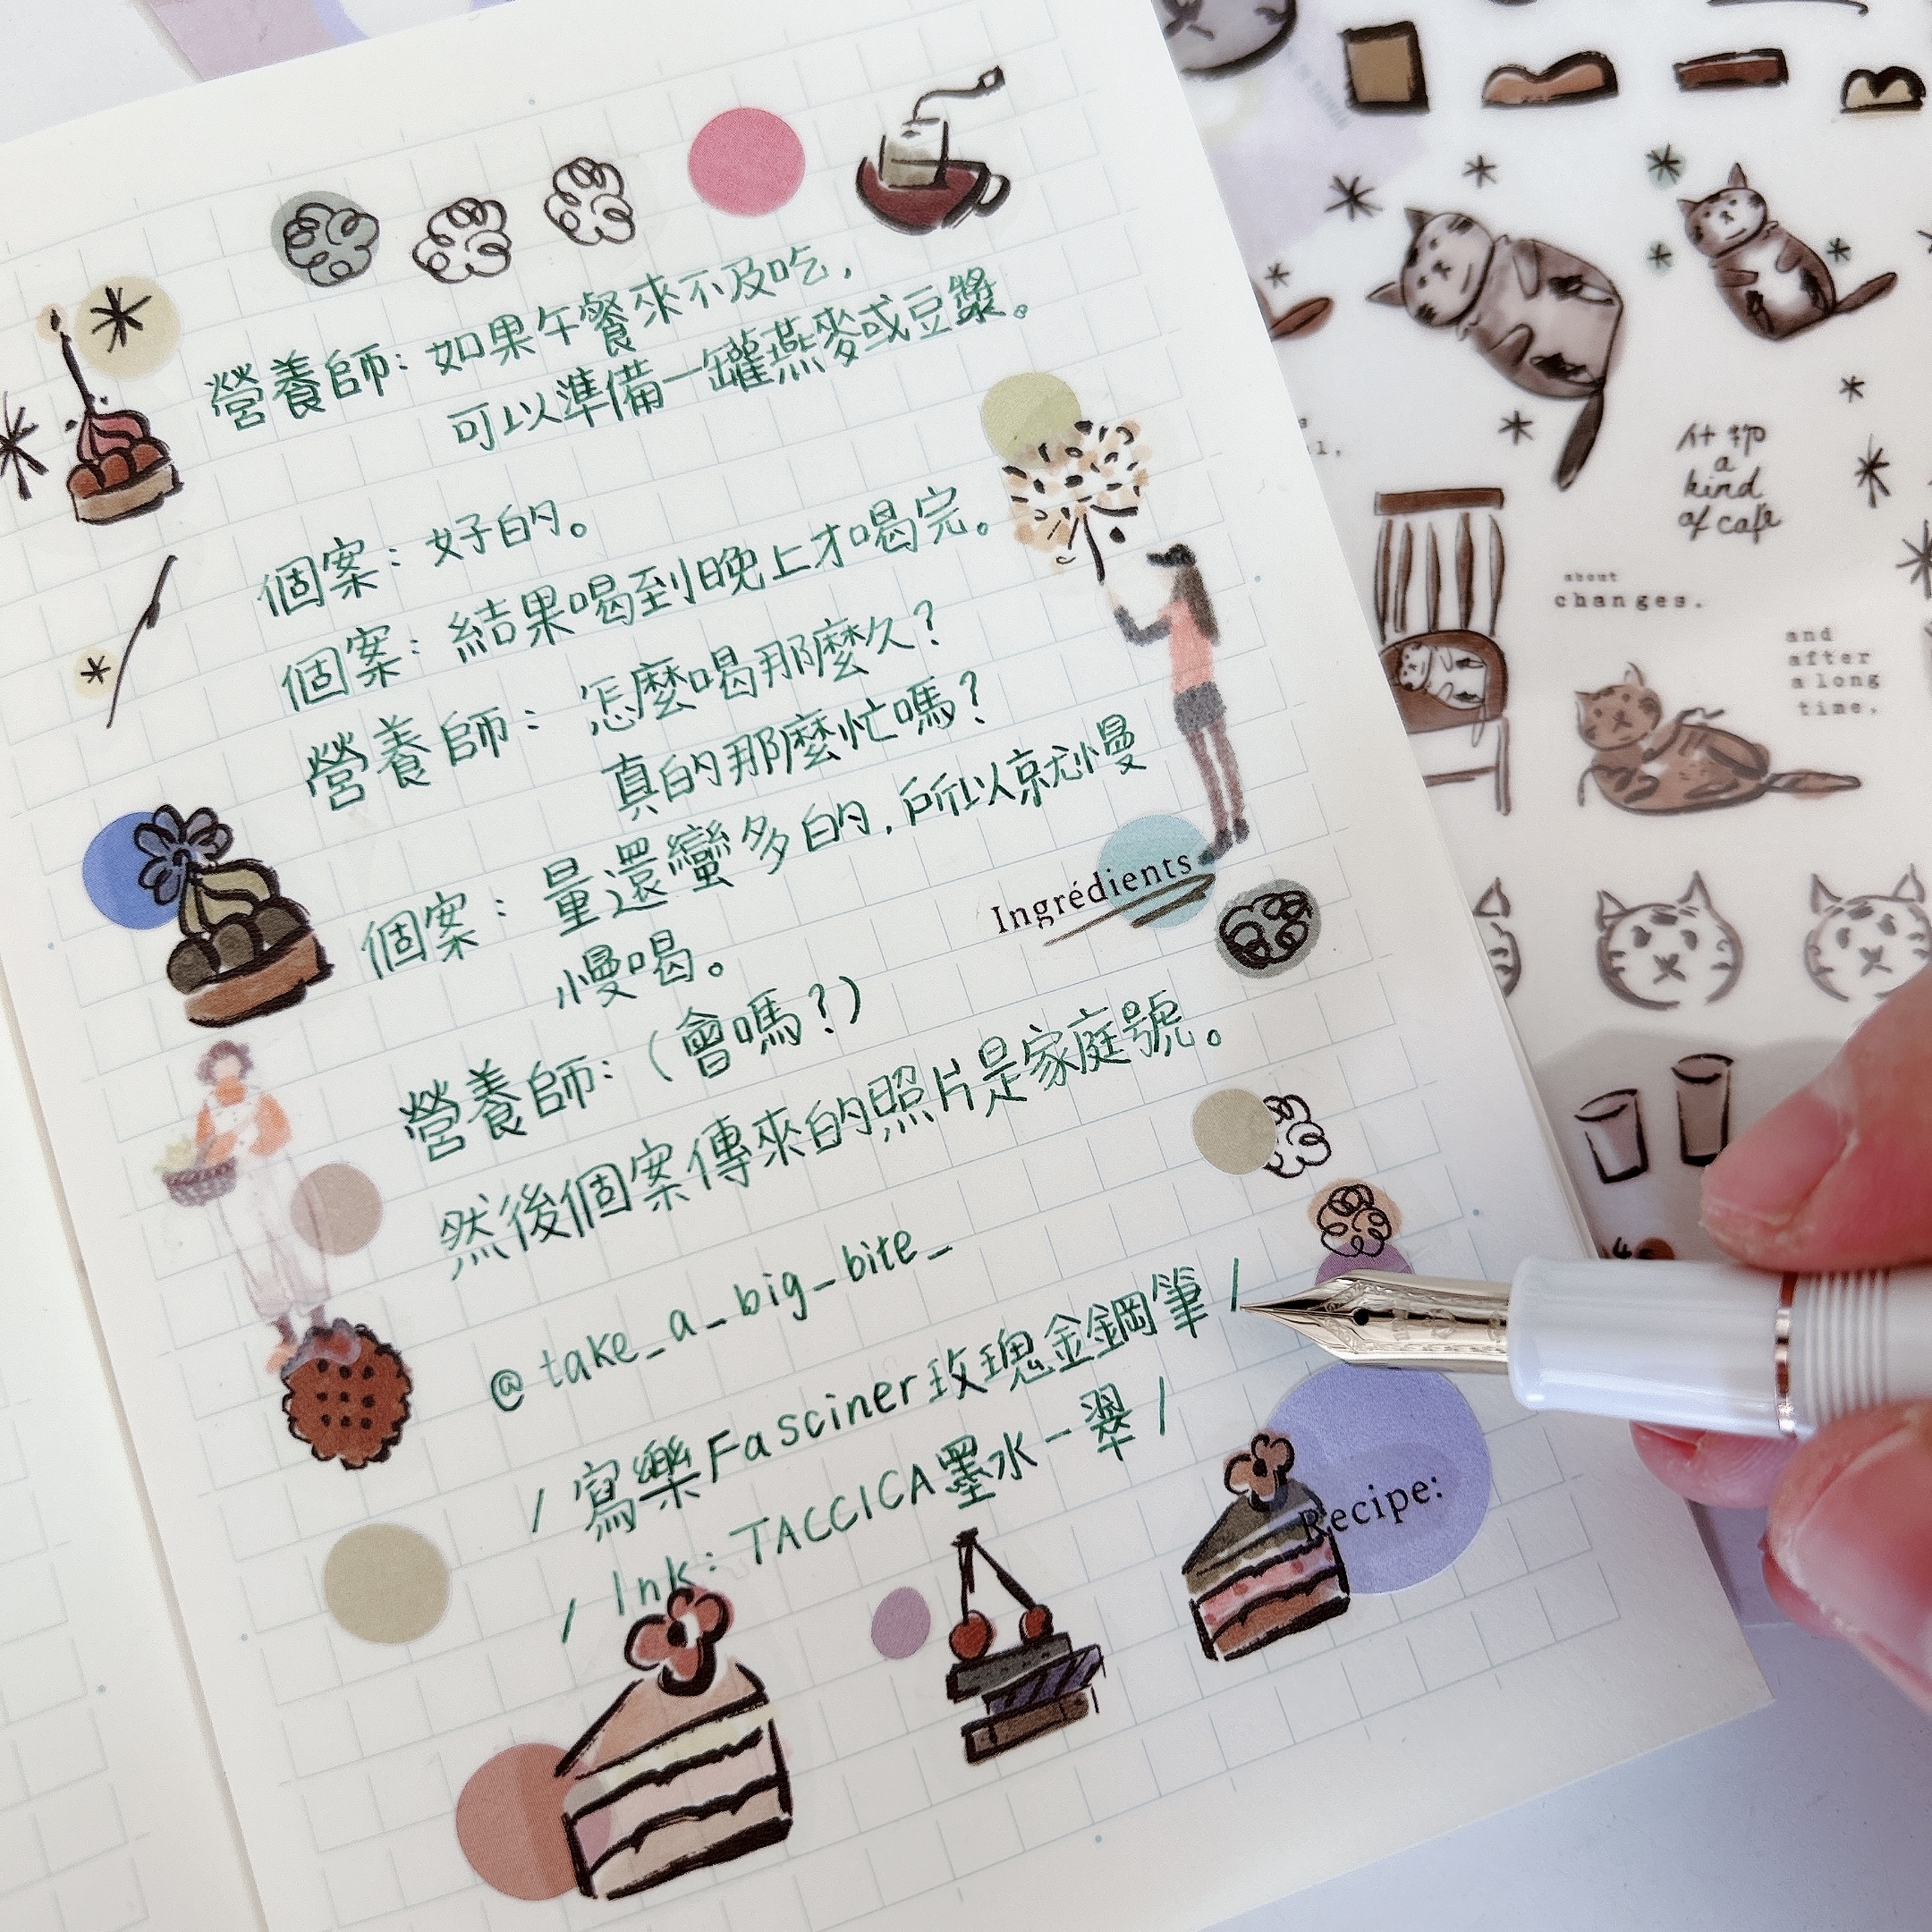 營養師：如果午餐來不及吃，
可以準備一罐燕麥或豆漿。
個案：好的。
個案：結果喝到晚上才喝完。
營養師：怎麼喝那麼久？
真的那麼忙嗎？
個案：量還蠻多的，所以就慢
慢喝。
營養師：（會嗎？）
然後個案傳來的照片是家庭號。
@take_a_big_bite_
/ 寫樂Fasciner玫瑰金鋼筆 /
/ Ink：TACCICA墨水－翠 /
Ingrédients
Recipe:
a
kind
of cafe
about
changes.
and
after
a long
time,